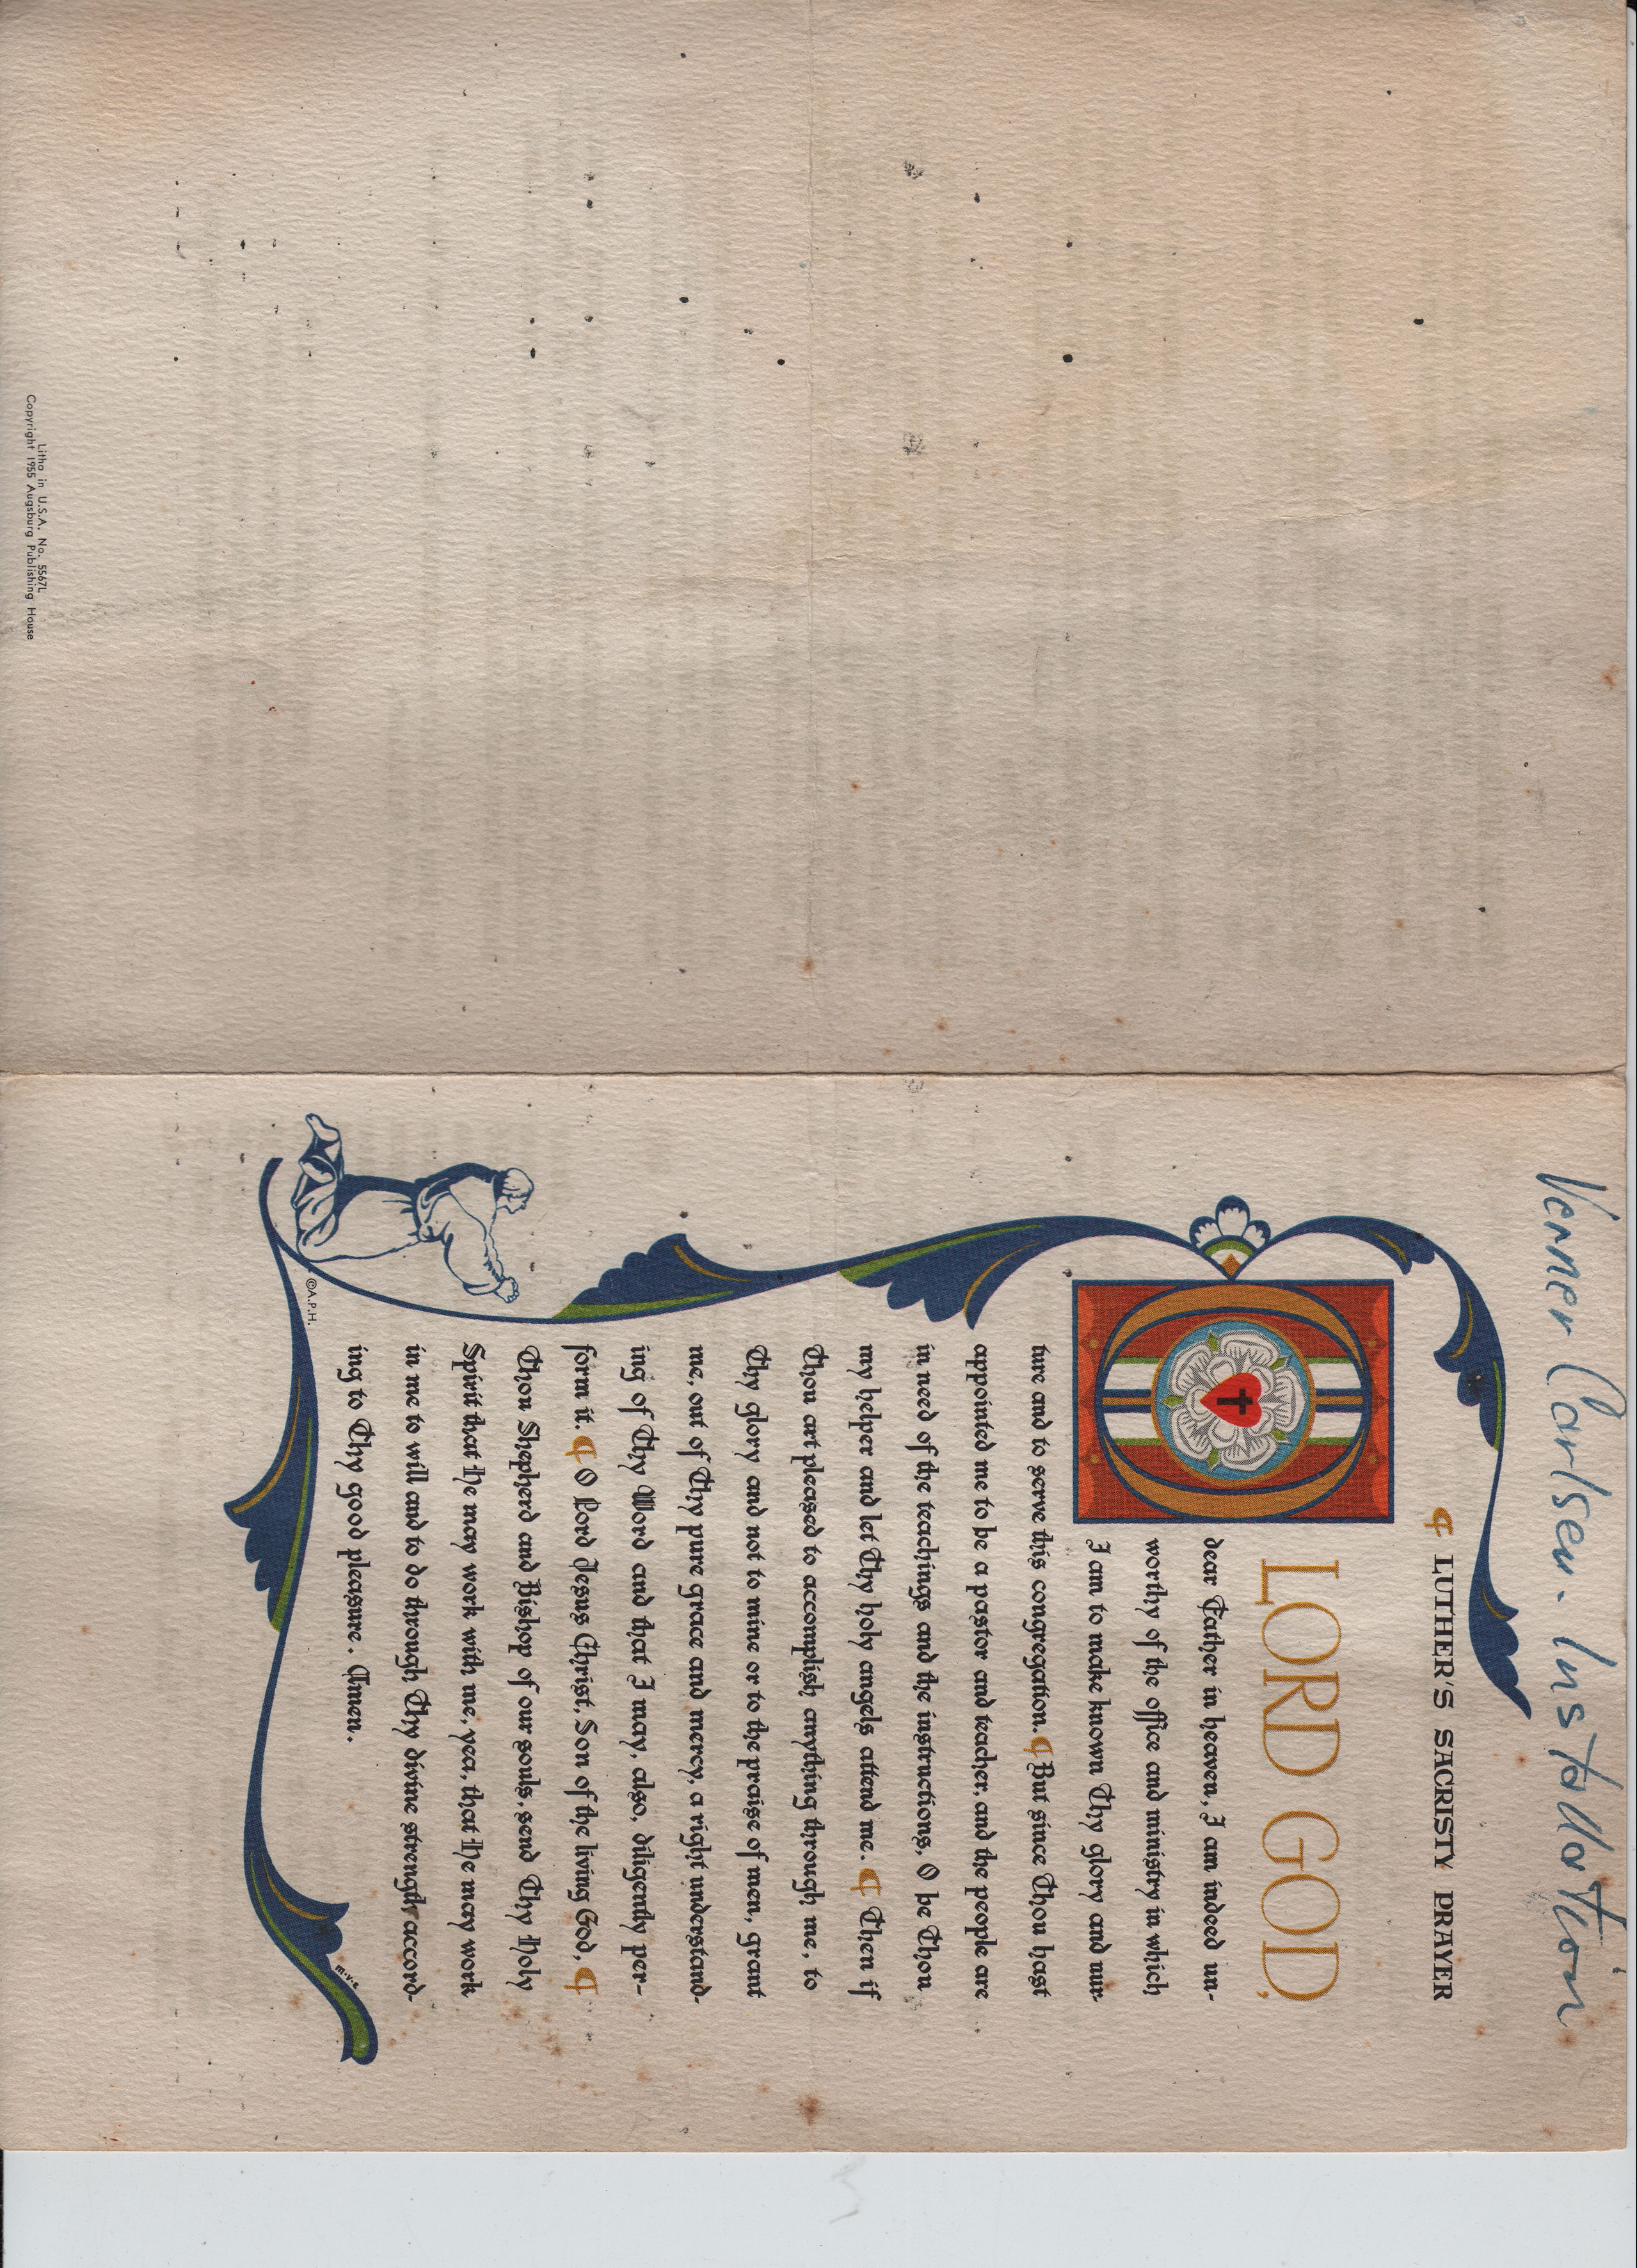 Verner Carlsen. Installation
¶ LUTHER'S SACRISTY PRAYER
O LORD GOD,
dear Father in heaven, I am indeed un-
worthy of the office and ministry in which
I am to make known Thy glory and nur-
ture and to serve this congregation. ¶ But since Thou hast
appointed me to be a pastor and teacher, and the people are
in need of the teachings and the instructions, O be Thou
my helper and let Thy holy angels attend me. ¶ Then if
Thou art pleased to accomplish anything through me, to
Thy glory and not to mine or to the praise of men, grant
me, out of Thy pure grace and mercy, a right understand-
ing of Thy Word and that I may, also, diligently per-
form it. ¶ O Lord Jesus Christ, Son of the living God, ¶
Thou Shepherd and Bishop of our souls, send Thy Holy
Spirit that He may work with me, yea, that He may work
in me to will and to do through Thy divine strength accord-
ing to Thy good pleasure. Amen.
©A.P.H.
m·v·e
Litho in U.S.A. No. 5567L
Copyright 1955 Augsburg Publishing House